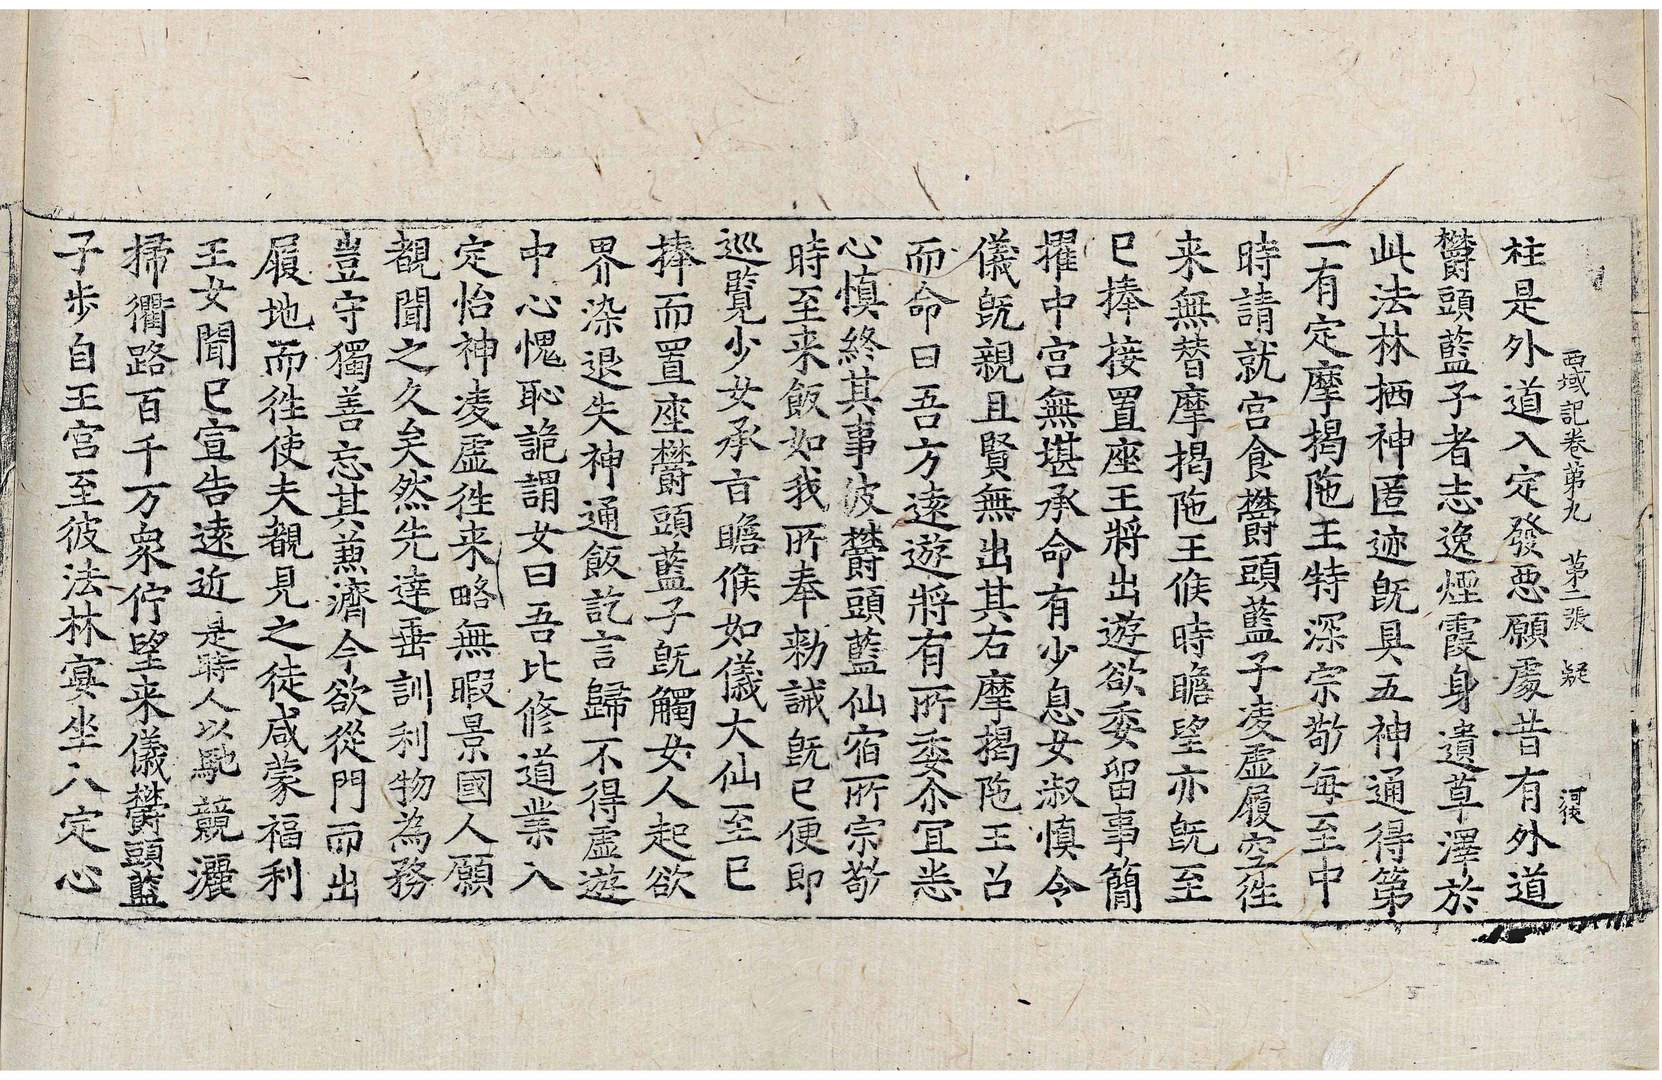 西域記卷苐九 苐二張 疑 河俊
柱是外道入定發惡願處昔有外道
欝頭藍子者志逸煙霞身遺草澤於
此法林栖神匿迹旣具五神通得第
一有定摩揭陁王特深宗敬每至中
時請就宮食欝頭藍子凌虛履空徃
来無替摩揭陁王候時瞻望亦旣至
已捧接置座王將出遊欲委留事簡
擢中宮無堪承命有少息女淑慎令
儀旣親且賢無出其右摩揭陁王召
而命曰吾方遠遊將有所委尒宜悉
心慎終其事彼欝頭藍仙宿所宗敬
時至来飯如我所奉勑誡旣已便即
巡覽少女承旨瞻候如儀大仙至已
捧而置座欝頭藍子旣觸女人起欲
界染退失神通飯訖言歸不得虛遊
中心愧恥詭謂女曰吾比修道業入
定怡神凌虛徃来略無暇景國人願
覩聞之久矣然先達垂訓利物為務
豈守獨善忘其蒹濟今欲從門而出
履地而徃使夫覩見之徒咸蒙福利
王女聞已宣告遠近是時人以馳競灑
掃衢路百千万衆佇望来儀欝頭藍
子步自王宮至彼法林宴坐入定心